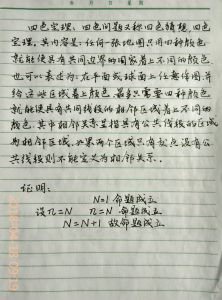 年 月 日 星期
四色定理：四色问题又称四色猜想，四色
定理，其内容是：任何一张地图只用四种颜色
就能使具有共同边界的国家着上不同的颜色
也可以表述为：在平面或球面上任意作图并
给这些区域着上颜色，最多只需要四种颜色
就能使具有共同线段的相邻区域着上不同的颜
色。其中相邻关系是指具有公共线段的区域
为相邻区域，如果两个区域只有交点没有公
共线段则不能定义为相邻关系。
证明：
N=1 命题成立
设n=N n=N 命题成立
N=N+1 故命题成立